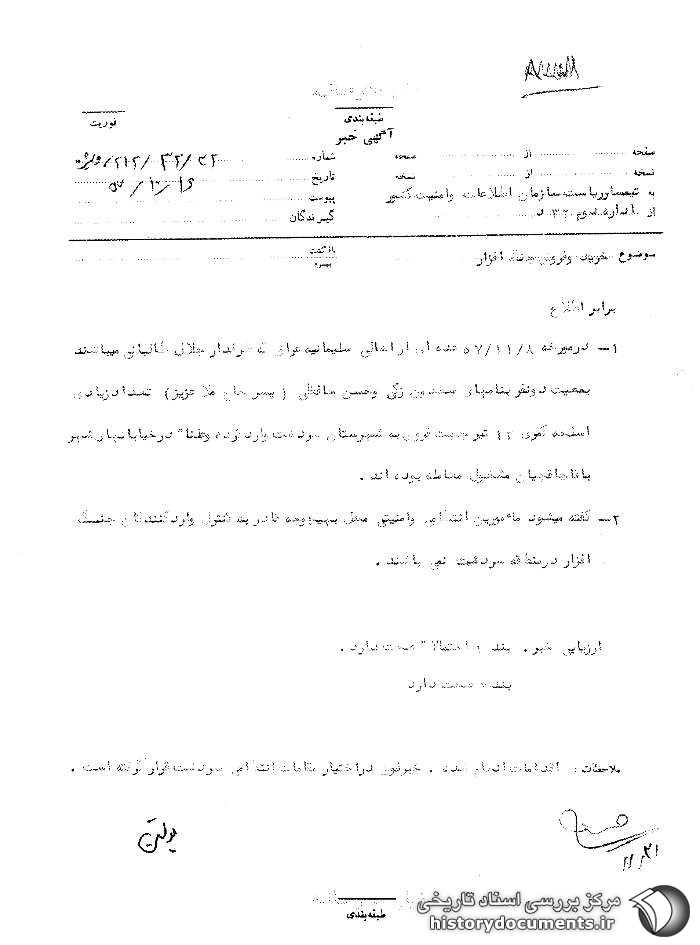 طبقه‌بندی
فوریت
آگهی خبر
صفحه از صفحه شماره
نسخه از نسخه تاریخ
به تیمسار ریاست سازمان اطلاعات و امنیت کشور پیوست
از اداره سوم ۳۲ گیرندگان
موضوع خرید و فروش جنگ افزار بازگشت
برابر اطلاع
۱- در مورخه ۵۷/۱۱/۸ عده‌ای از اهالی سلیمانیه عراق که طرفدار جلال طالبانی میباشند
بمعیت دو نفر بنامهای سعدون زکی و حسن حافظی (پسر حاج ملا عزیز) تعداد زیادی
اسلحه کمری ۱۳ تیر جهت فروش به شهرستان سردشت وارد کرده و علنا" در خیابانهای شهر
با قاچاقچیان مشغول معامله بوده‌اند.
۲- گفته میشود مامورین انتظامی و امنیتی محل بهیچوجه قادر به کنترل وارد کنندگان جنگ
افزار در منطقه سردشت نمی باشند.
ارزیابی خبر. بند ۱ احتمالا" صحت دارد.
بند ۲ صحت دارد
ملاحظات: اقدامات انجام شده. خبر فوق در اختیار مقامات انتظامی سردشت قرار گرفته است.
۱۱/۲۱
طبقه‌بندی
مرکز بررسی اسناد تاریخی
historydocuments.ir